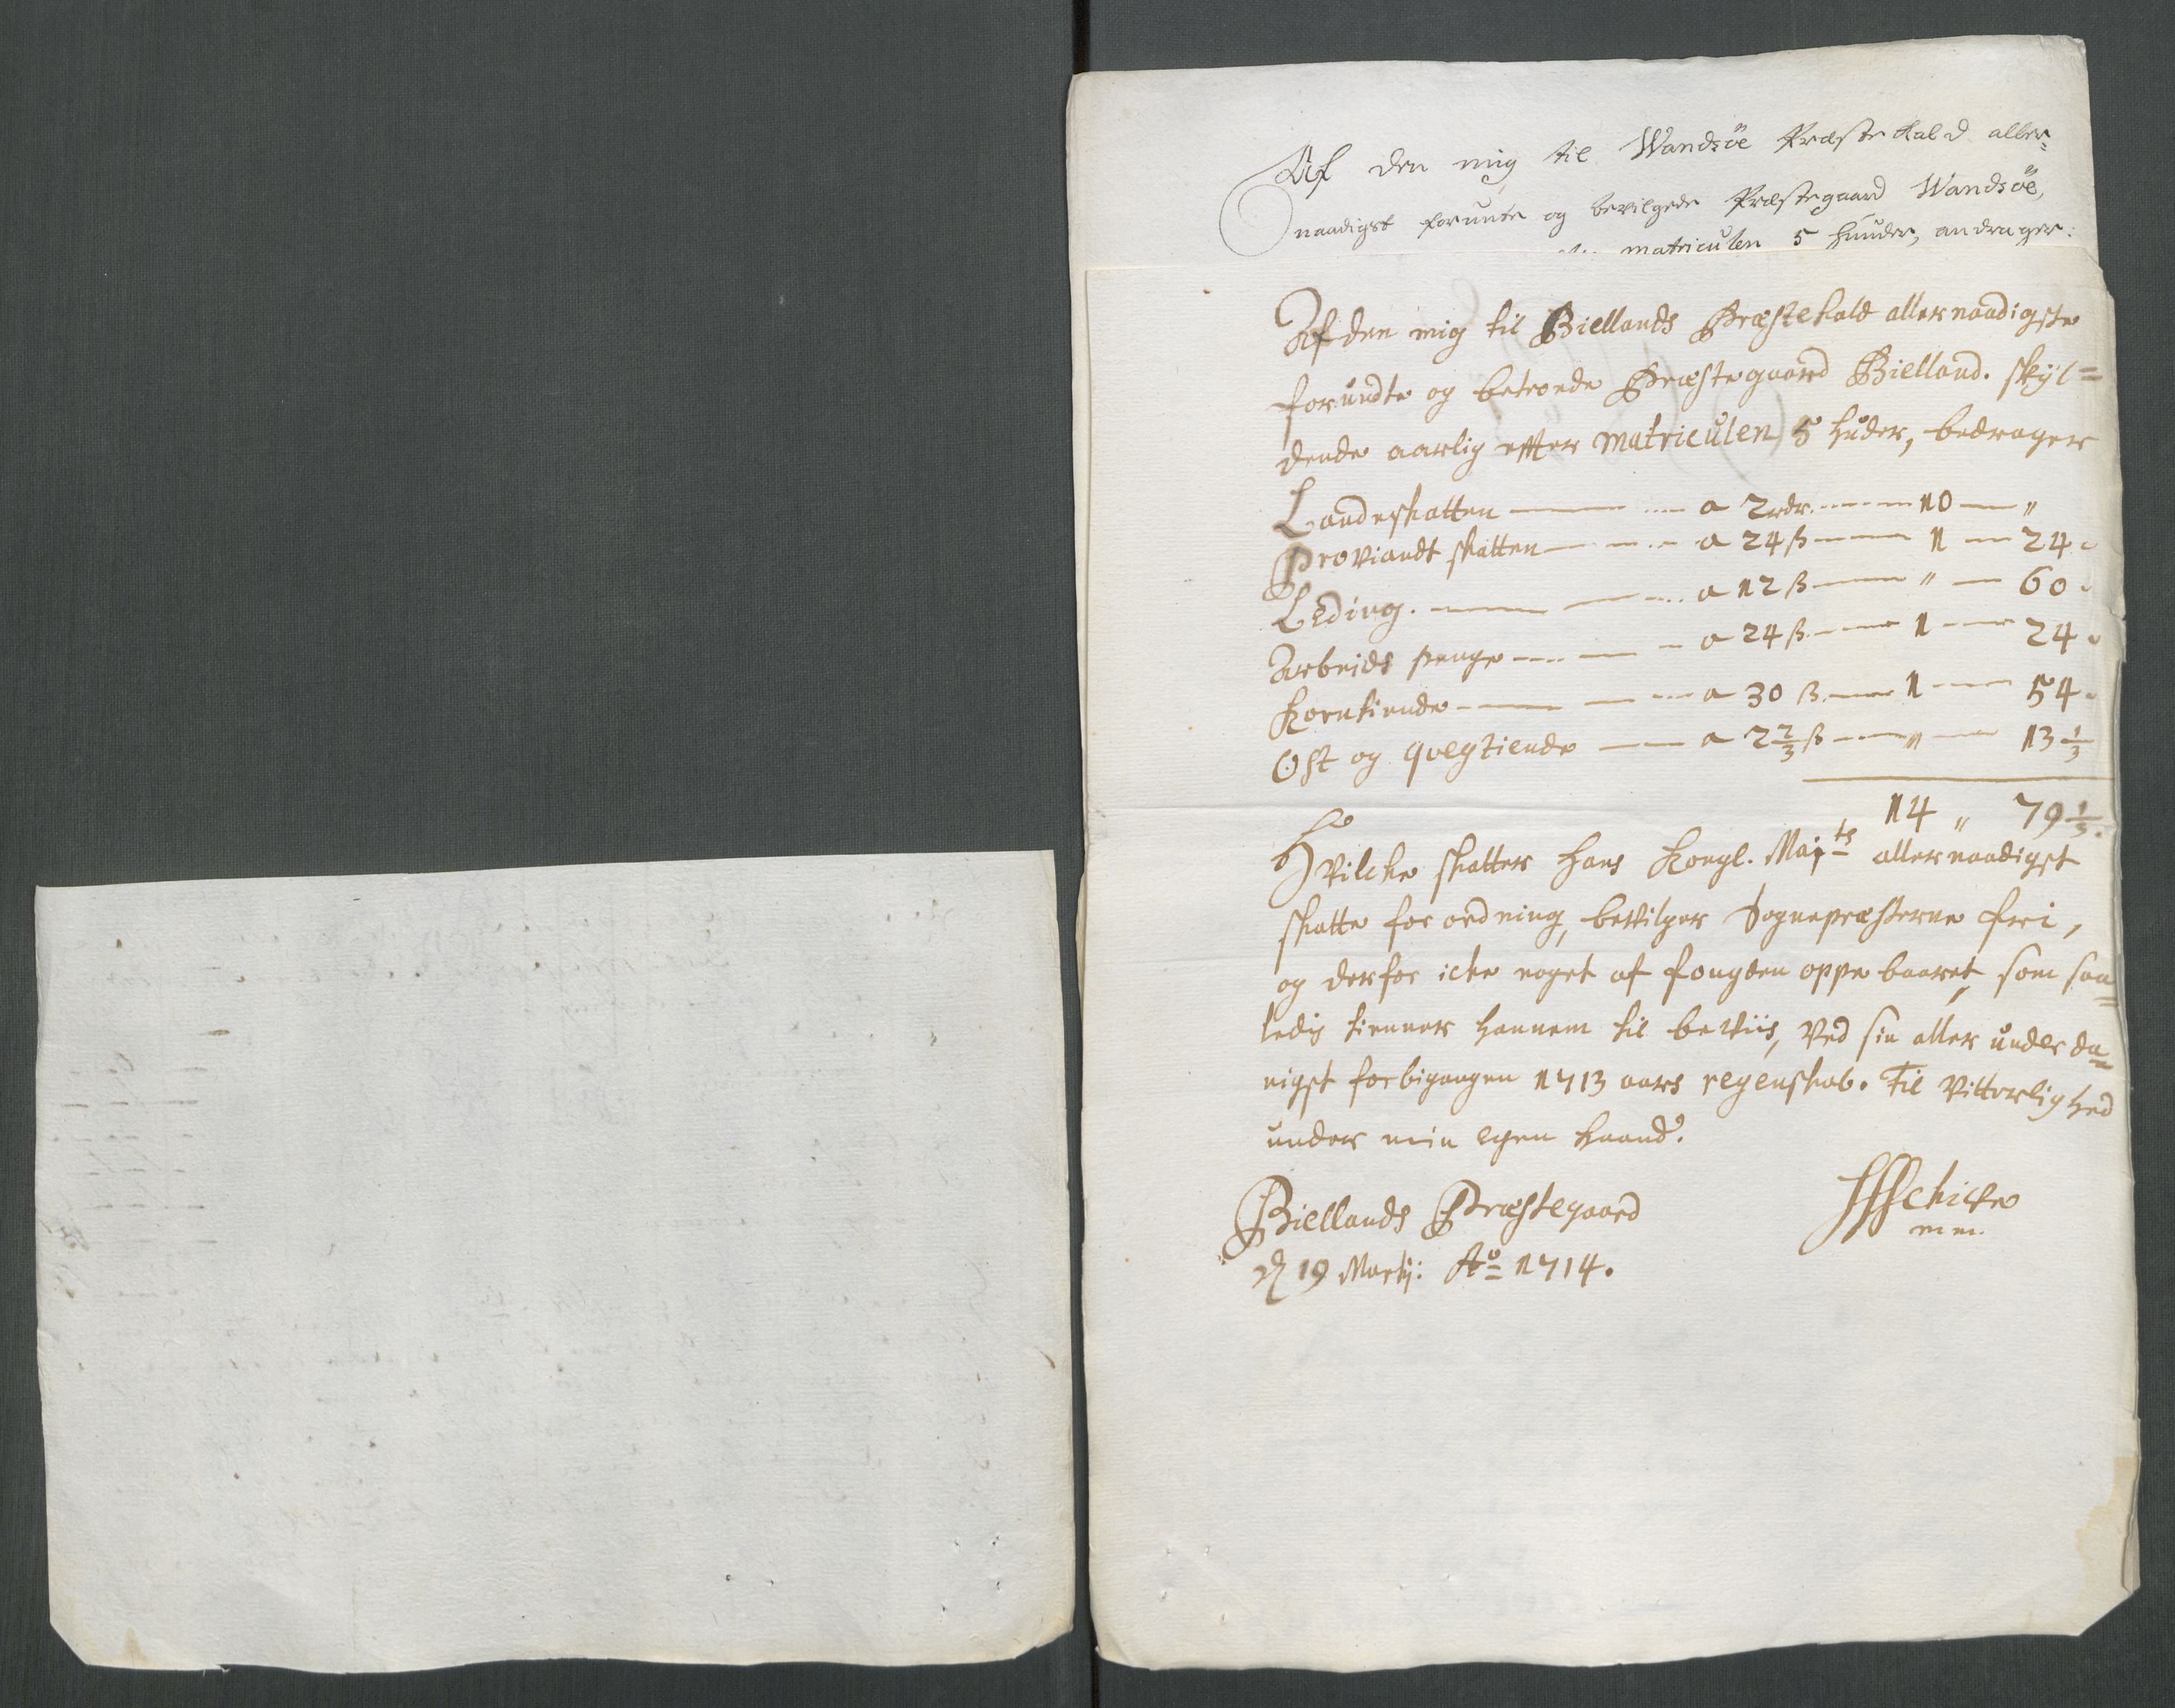 Af den mig til Wandsöe Præste Kald aller=
naadigst forunte og bevilgede Præstegaard Wandsöe,
matriculen 5 huuder, andrager:
Af den mig til Biellands Præstekald allernaadigste
forundte og betroede Præstegaard Bielland. skyl=
dende aarlig efter matriculen 5 huder, bedrager
Landskatten — a 2 rdr. — 10 — "
Proviandt skatten — a 24 ß — 1 — 24.
Leding. — a 12 ß — " — 60.
Arbeids penge — a 24 ß — 1 — 24.
Korntiende — a 30 ß — 1 — 54.
Ost og qvegtiende — a 2 2/3 ß — " — 13 1/3
14 " 79 1/3.
Hvilche skatter Hans Kongl. Maj:ts allernaadigst
skatte forordning, bevilger Sognepræsterne fri,
og derfor iche noget af fougden oppebaaret, som saa=
ledis tienner hannem til beviis, Ved sin aller under da=
nigst forbigangen 1713 aars regenskab. Til Vitterlighed
under min egen haand.
Biellands Præstegaard
d 19 Martij: Ao 1714.
mm.